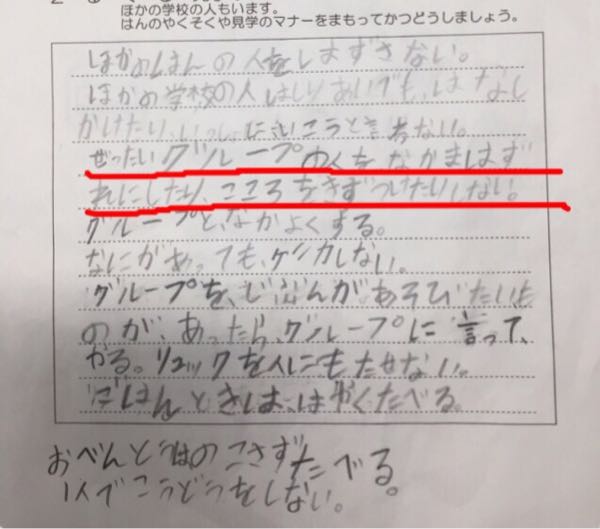 ほかの学校の人もいます。
はんのやくそくや見学のマナーをまもってかつどうしましょう。
ほかのはんの人をじまずさない。
ほかの学校の人はしりあいでも、はなし
かけたり、いっしょにさいこうと言わない。
ぜったいグループの人をなかまはず
れにしたり、こころをきずつけたりしない。
グループと、なかよくする。
なにがあっても、ケンカしない。
グループを、じぶんがあそびたいも
のが、あったら、グループに言って、
かる。リュックを人にもたせない。
ごはんときは、はやくたべる。
おべんとうはのこさずたべる。
1人でこうどうをしない。